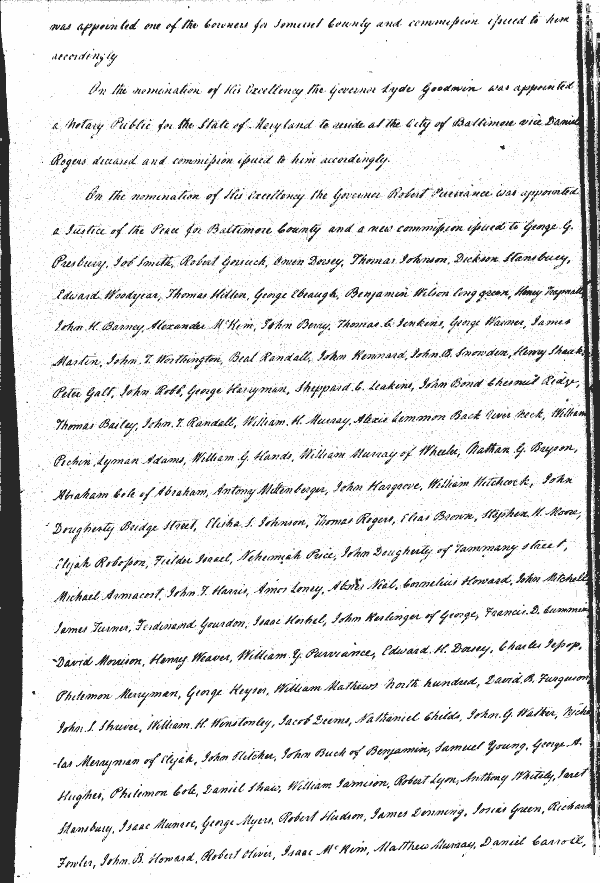 was appointed one of the Coroners for Somerset County and commission issued to him
accordingly
On the nomination of His Excellency the Governor Lyde Goodwin was appointed
a Notary Public for the State of Maryland to reside at the City of Baltimore vice Daniel
Rogers deceased and commission issued to him accordingly.
On the nomination of His Excellency the Governor Robert Purviance was appointed
a Justice of the Peace for Baltimore County and a new commission issued to George G.
Presbury, Job Smith, Robert Gorsuch, Owen Dorsey, Thomas Johnson, Dickson Stansbury,
Edward Woodyear, Thomas Hillen, George Ebaugh, Benjamin Wilson Long green, Henry
John H. Barney, Alexander McKim, John Berry, Thomas C. Jenkins, George Warner, James
Martin, John T. Worthington, Beal Randall, John Kennard, John B. Snowden, Henry Shauck,
Peter Galt, John Robb, George Harryman, Sheppard C. Leakins, John Bond Chesnut Ridge,
Thomas Bailey, John T. Randall, William H. Murray, Alexis Lemmon Back River Neck, William
Pechin, Lyman Adams, William G. Hands, William Murray of Wheeler, Nathan G. Bryson,
Abraham Cole of Abraham, Antony Miltenberger, John Hargrove, William Hitchcock, John
Dougherty Bridge Street, Elisha S. Johnson, Thomas Rogers, Elias Brown, Stephen H. Moore,
Elijah Robosson, Fielder Israel, Nehemiah Price, John Dougherty of Tammany street,
Michael Armacost, John T. Harris, Amos Loney, Abner Neal, Cornelius Howard, John Mitchell
James Turner, Ferdinand Gourdon, Isaac Hoshel, John Kerlinger of George, Francis D.
David Morrison, Henry Weaver, William Y. Purviance, Edward H. Dorsey, Charles Jessop,
Philemon Merryman, George Keyser, William Mathews North hundred, David R. Ferguson
John S. Shriver, William H. Winstonley, Jacob Deems, Nathaniel Childs, John G. Walker, Nicho
-las Merryman of Elijah, John Fletcher, John Buck of Benjamin, Samuel Young, George A.
Hughes, Philemon Cole, Daniel Shaw, William Jamison, Robert Lyon, Anthony Whitely, Jaret
Stansbury, Isaac Munroe, George Myers, Robert Hudson, James Donning, Josias Green, Richard
Fowler, John B. Howard, Robert Oliver, Isaac McKim, Matthew Murray, Daniel Carroll,